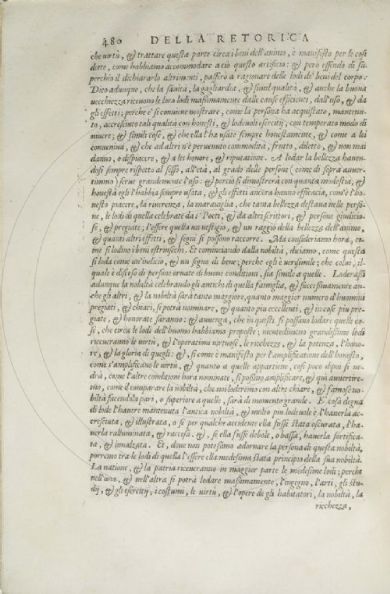 480 DELLA RETORICA
che virtù, & trattare questa parte circa i beni dell'animo, è manifesto per le cose
dette, come habbiamo accommodare a ciò questo artificio: & però essendo di su-
perchio il dichiararlo altrimenti, passerò a ragionare delle lodi de' beni del corpo.
Dico adunque, che la sanità, la gagliardia, & simil qualità, & anche la buona
vecchiezza ricevono le loro lodi massimamente dalle cause efficienti, dall'uso, & da
gli effetti; perche è sì come mostrare, come la persona ha acquistato, mantenu-
to, accresciuto tali qualità con honesti, & lodevoli esercitij, con temperato modo di
vivere; & simili cose, & che ella l'ha usate sempre honestamente, & come a lei
conveniva, & che ad altri n'è pervenuto commodità, frutto, diletto, & non mai
danno, o dispiacere, & a lei honore, & riputatione. A lodar la bellezza haven-
dosi sempre rispetto al sesso, all'età, al grado delle persone
& poi che si dimostrerà con quanta modestia, &
honestà egli l'habbia sempre usata, & gli effetti ancora hanno efficacia, com'è l'ho-
nesto piacere, la riverenza, la maraviglia, che tanta bellezza desta nelle perso-
ne, le lodi di quella celebrate da i Poeti, & da altri scrittori, & persone giudicio-
se, & pregiate; l'essere quella un vestigio, & un raggio della bellezza dell'animo,
& quanti altri effetti, & segni si possono raccorre. Ma consideriamo hora, co-
me si lodino i beni estrinsechi. Et cominciando dalla nobiltà, diciamo, come questa
si loda come un'indicio, & un segno di bene; perche egli è verisimile che colui, il
quale è disceso da persone ornate di buone conditioni, sia simile a quelle. Loderassi
adunque la nobiltà celebrando gli antichi di quella famiglia, & successivamente an-
che gli altri, & la nobiltà sarà tanto maggiore, quanto maggior numero d'huomini
pregiati, & chiari, si potrà nominare, & quanto più eccellenti, & in cose più pre-
giate, & honorate saranno: & avvenga, che in questi, si possano lodare quelle co-
se, che circa le lodi dell'huomo habbiamo proposte; nientedimeno grandissime lodi
riceveranno le virtù, & l'operationi virtuose, le ricchezze, & la potenza, l'hono-
re, & la gloria di quegli: & sì come è manifesto per l'amplificationi dell'honesto,
come s'amplificano le virtù, & quanto a quelle appartiene, così poco dipoi si ve-
drà, come l'altre conditioni hora nominate, si possino amplificare, & qui avverti-
remo, come il comparare la nobiltà, che noi lodiremo con altre chiare, & famose no-
biltà facendola pari, o superiore a quelle, sarà di momento grande. E' cosa degna
di lode l'havere mantenuta l'antica nobiltà, & molto più lodevole è l'haverla ac-
cresciuta, & illustrata, o se per qualche accidente ella fusse stata oscurata, l'ha-
verla ralluminata, & raccesa. & se ella fusse debole, o bassa, haverla fortifica-
ta, & innalzata. Et, dove noi potessimo adornare la persona di questa nobiltà,
porremo tra le lodi di quella l'essere ella medesima stata principio della sua nobiltà.
La natione, & la patria riceveranno in maggior parte le medesime lodi; perche
nell'una, & nell'altra si potrà lodare massimamente, l'ingegno, l'arti, gli stu-
dij, & gli esercitij; i costumi, le virtù, & l'opere de gli habitatori, la nobiltà, la
ricchezza,